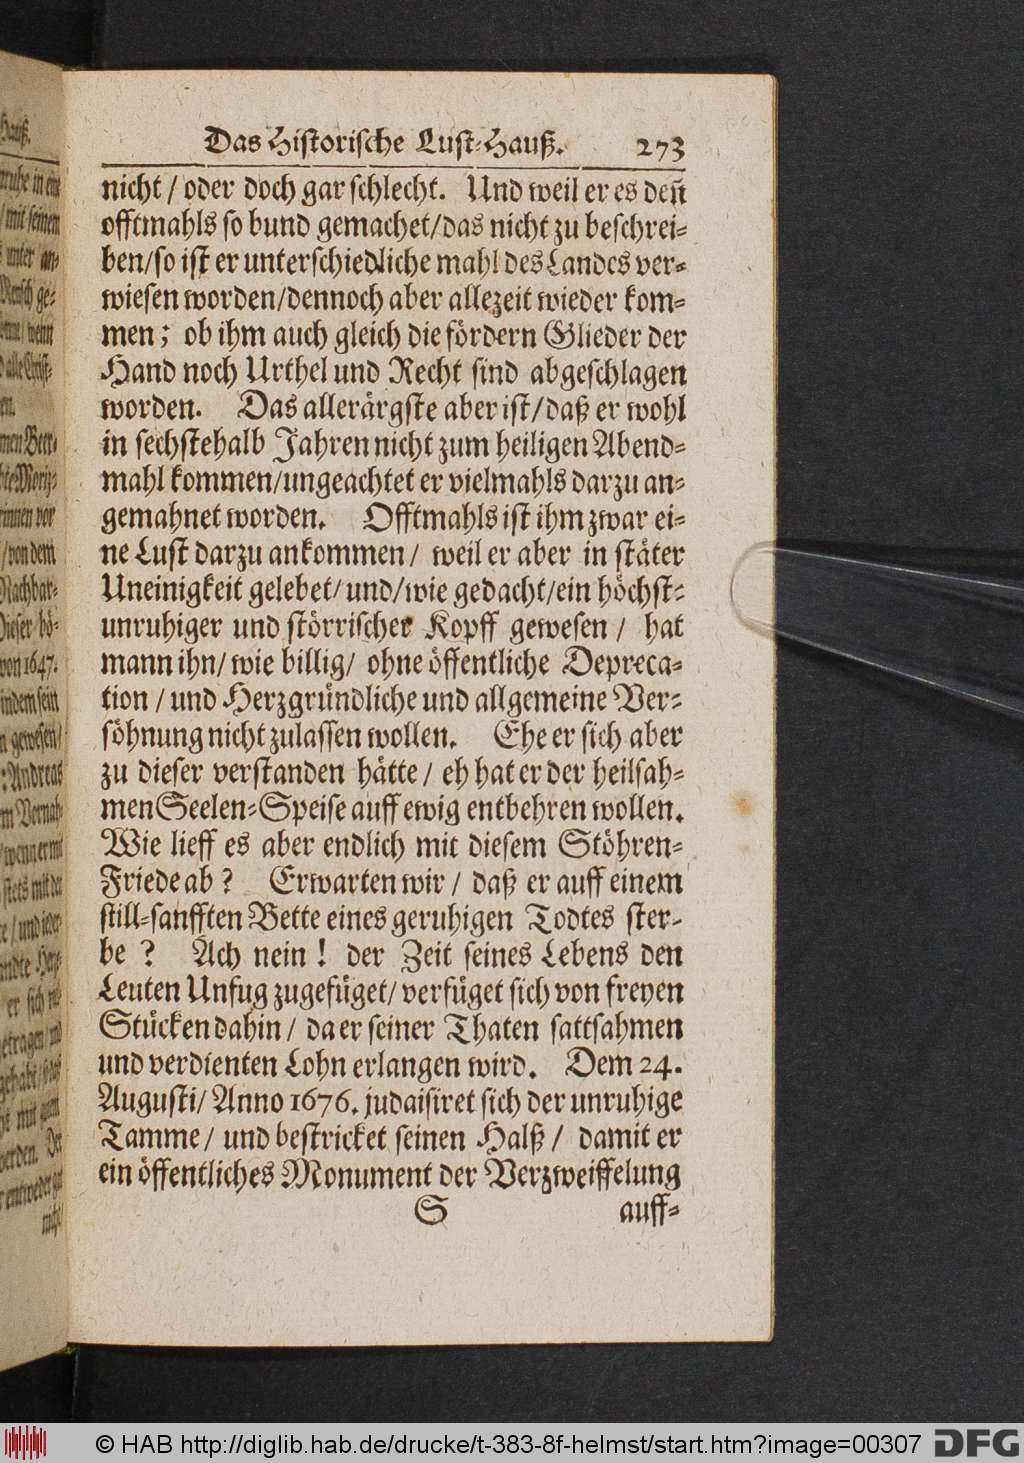 Das Historische Lust-Hauß. 273
nicht / oder doch gar schlecht. Und weil er es deñ
offtmahls so bund gemachet/das nicht zu beschrei-
ben/so ist er unterschiedliche mahl des Landes ver-
wiesen worden/dennoch aber allezeit wieder kom-
men; ob ihm auch gleich die fördern Glieder der
Hand noch Urthel und Recht sind abgeschlagen
worden. Das allerärgste aber ist/daß er wohl
in sechstehalb Jahren nicht zum heiligen Abend-
mahl kommen/ungeachtet er vielmahls darzu an-
gemahnet worden. Offtmahls ist ihm zwar ei-
ne Lust darzu ankommen/ weil er aber in stäter
Uneinigkeit gelebet/ und/wie gedacht/ein höchst-
unruhiger und störrischer Kopff gewesen / hat
mann ihn/ wie billig/ ohne öffentliche Depreca-
tion / und Herzgründliche und allgemeine Ver-
söhnung nicht zulassen wollen. Ehe er sich aber
zu dieser verstanden hätte / eh hat er der heilsah-
men Seelen-Speise auff ewig entbehren wollen.
Wie lieff es aber endlich mit diesem Stöhren-
Friede ab? Erwarten wir / daß er auff einem
still-sanfften Bette eines geruhigen Todtes ster-
be? Ach nein! der Zeit seines Lebens den
Leuten Unfug zugefüget/ verfüget sich von freyen
Stücken dahin / da er seiner Thaten sattsahmen
und verdienten Lohn erlangen wird. Dem 24.
Augusti/ Anno 1676. judaisiret sich der unruhige
Tamme/ und bestricket seinen Halß / damit er
ein öffentliches Monument der Verzweiffelung
S auff-
© HAB http://diglib.hab.de/drucke/t-383-8f-helmst/start.htm?image=00307 DFG